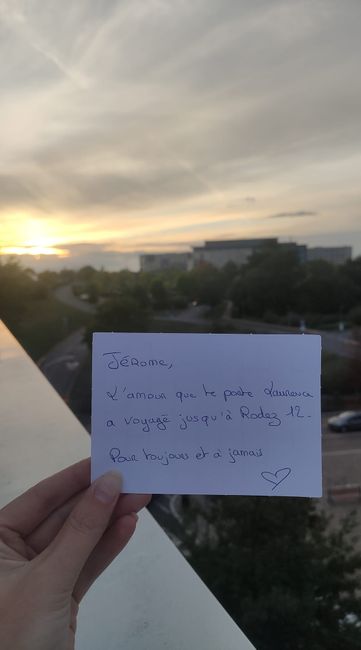 Jérome,
L'amour que te porte Laurence
a voyagé jusqu'à Rodez 12.
Pour toujours et à jamais